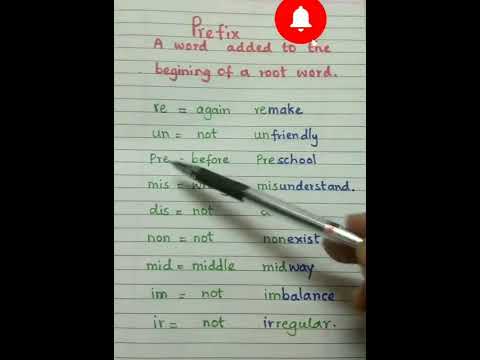 Prefix
A word added to the
begining of a root word.
re = again remake
un = not unfriendly
Pre - before Preschool
mis = misunderstand.
dis = not
non = not nonexist
mid = middle midway
im = not imbalance
ir = not irregular.